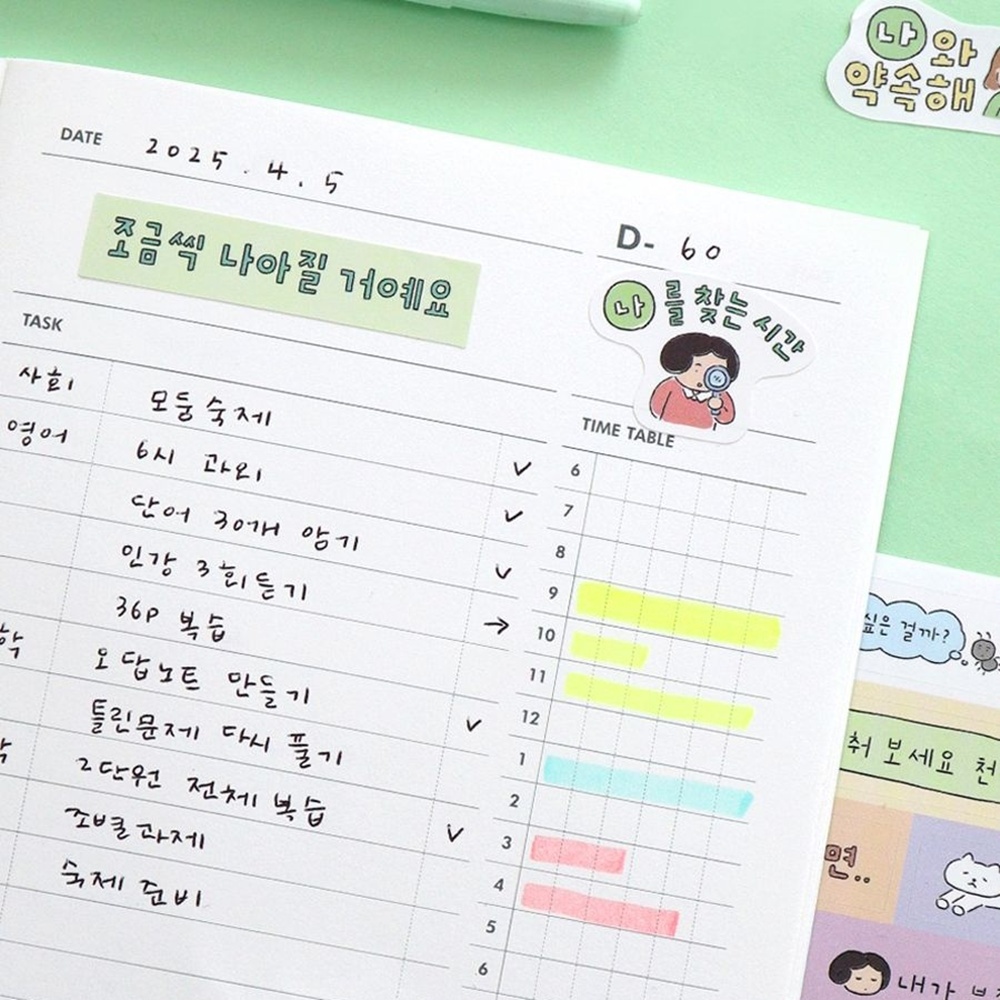 나와
약속해
DATE 2025.4.5
D-60
조금씩 나아질 거예요
나를 찾는 시간
TASK
사회 모둠숙제
영어 6시 과외
단어 30개 암기
인강 3회듣기
36P 복습
오답노트 만들기
틀린문제 다시 풀기
2단원 전체 복습
조별과제
숙제 준비
TIME TABLE
6
7
8
9
10
11
12
1
2
3
4
5
6
싶은 걸까?
춰 보세요 천
면..
내가